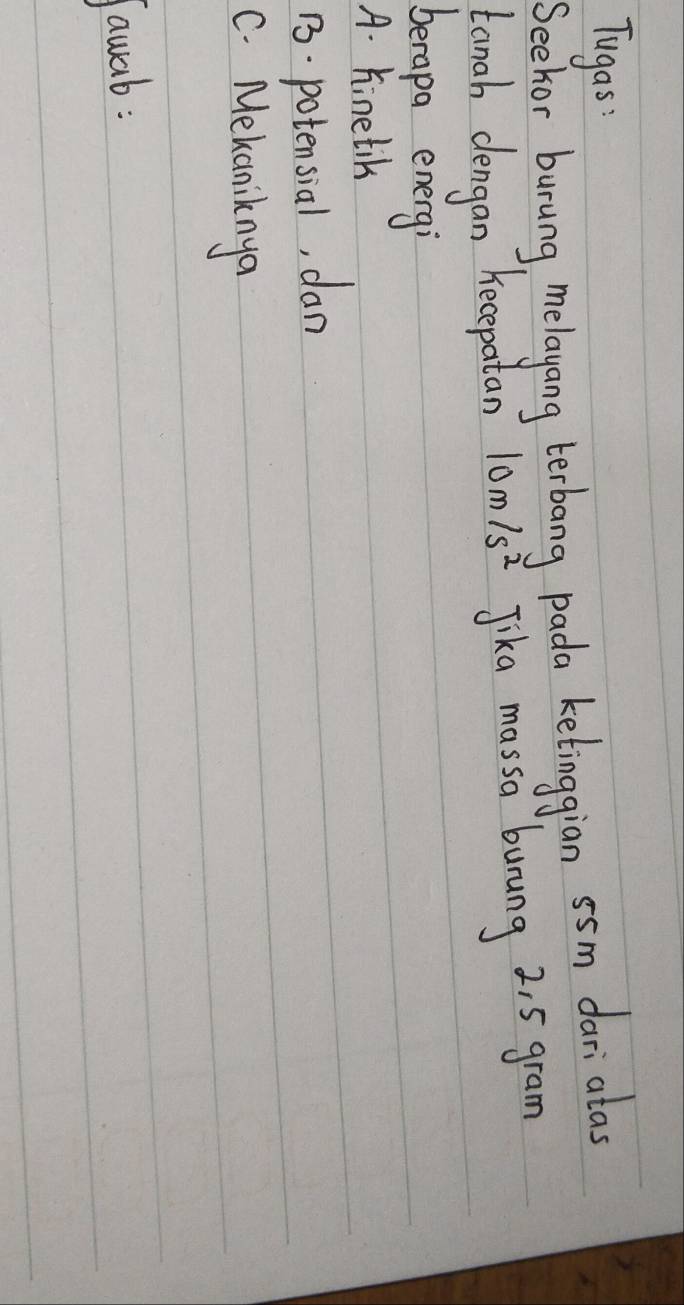 Tugas:
Seekor burung melayang terbang pada ketinggian 55m dari atas
tanah dengan kecepatan 10m/s² Jika massa burung 2,5 gram
berapa energi
A. Kinetik
B. potensial, dan
C. Mekaniknya
Jawab: